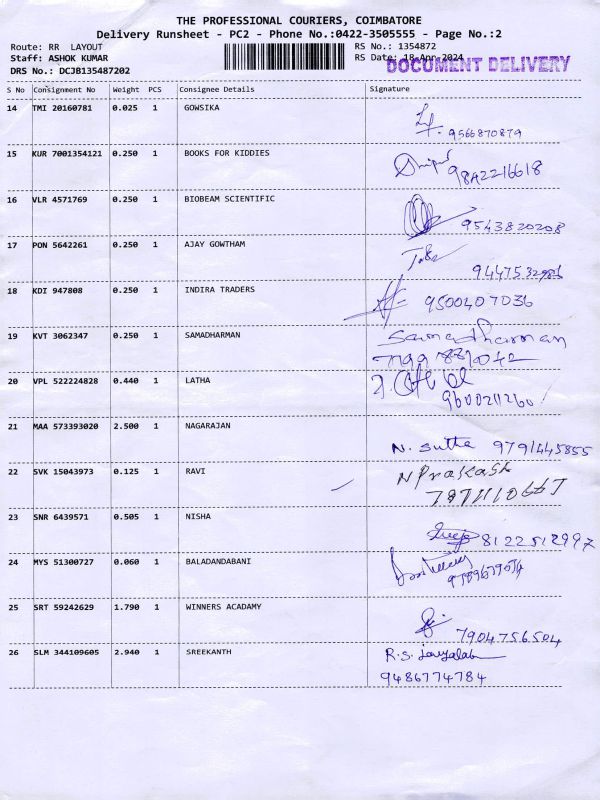 THE PROFESSIONAL COURIERS, COIMBATORE
Delivery Runsheet - PC2 - Phone No.:0422-3505555 - Page No.:2
Route: RR LAYOUT
RS No.: 1354872
Staff: ASHOK KUMAR
RS Date: 18-Apr-2024
DOCUMENT DELIVERY
DRS No.: DCJB135487202
S No Consignment No Weight PCS Consignee Details Signature
14 TMI 20160781 0.025 1 GOWSIKA
9566870879
15 KUR 7001354121 0.250 1 BOOKS FOR KIDDIES
9842216618
16 VLR 4571769 0.250 1 BIOBEAM SCIENTIFIC
9543820208
17 PON 5642261 0.250 1 AJAY GOWTHAM
18 KDI 947808 0.250 1 INDIRA TRADERS
9500407036
19 KVT 3062347 0.250 1 SAMADHARMAN
Samadharman
20 VPL 522224828 0.440 1 LATHA
9600211260
21 MAA 573393020 2.500 1 NAGARAJAN
N. Sutha 9791445855
22 SVK 15043973 0.125 1 RAVI
N Prakash
23 SNR 6439571 0.505 1 NISHA
8122512997
24 MYS 51300727 0.060 1 BALADANDABANI
25 SRT 59242629 1.790 1 WINNERS ACADAMY
7904756504
26 SLM 344109605 2.940 1 SREEKANTH
R.S.
9486774784